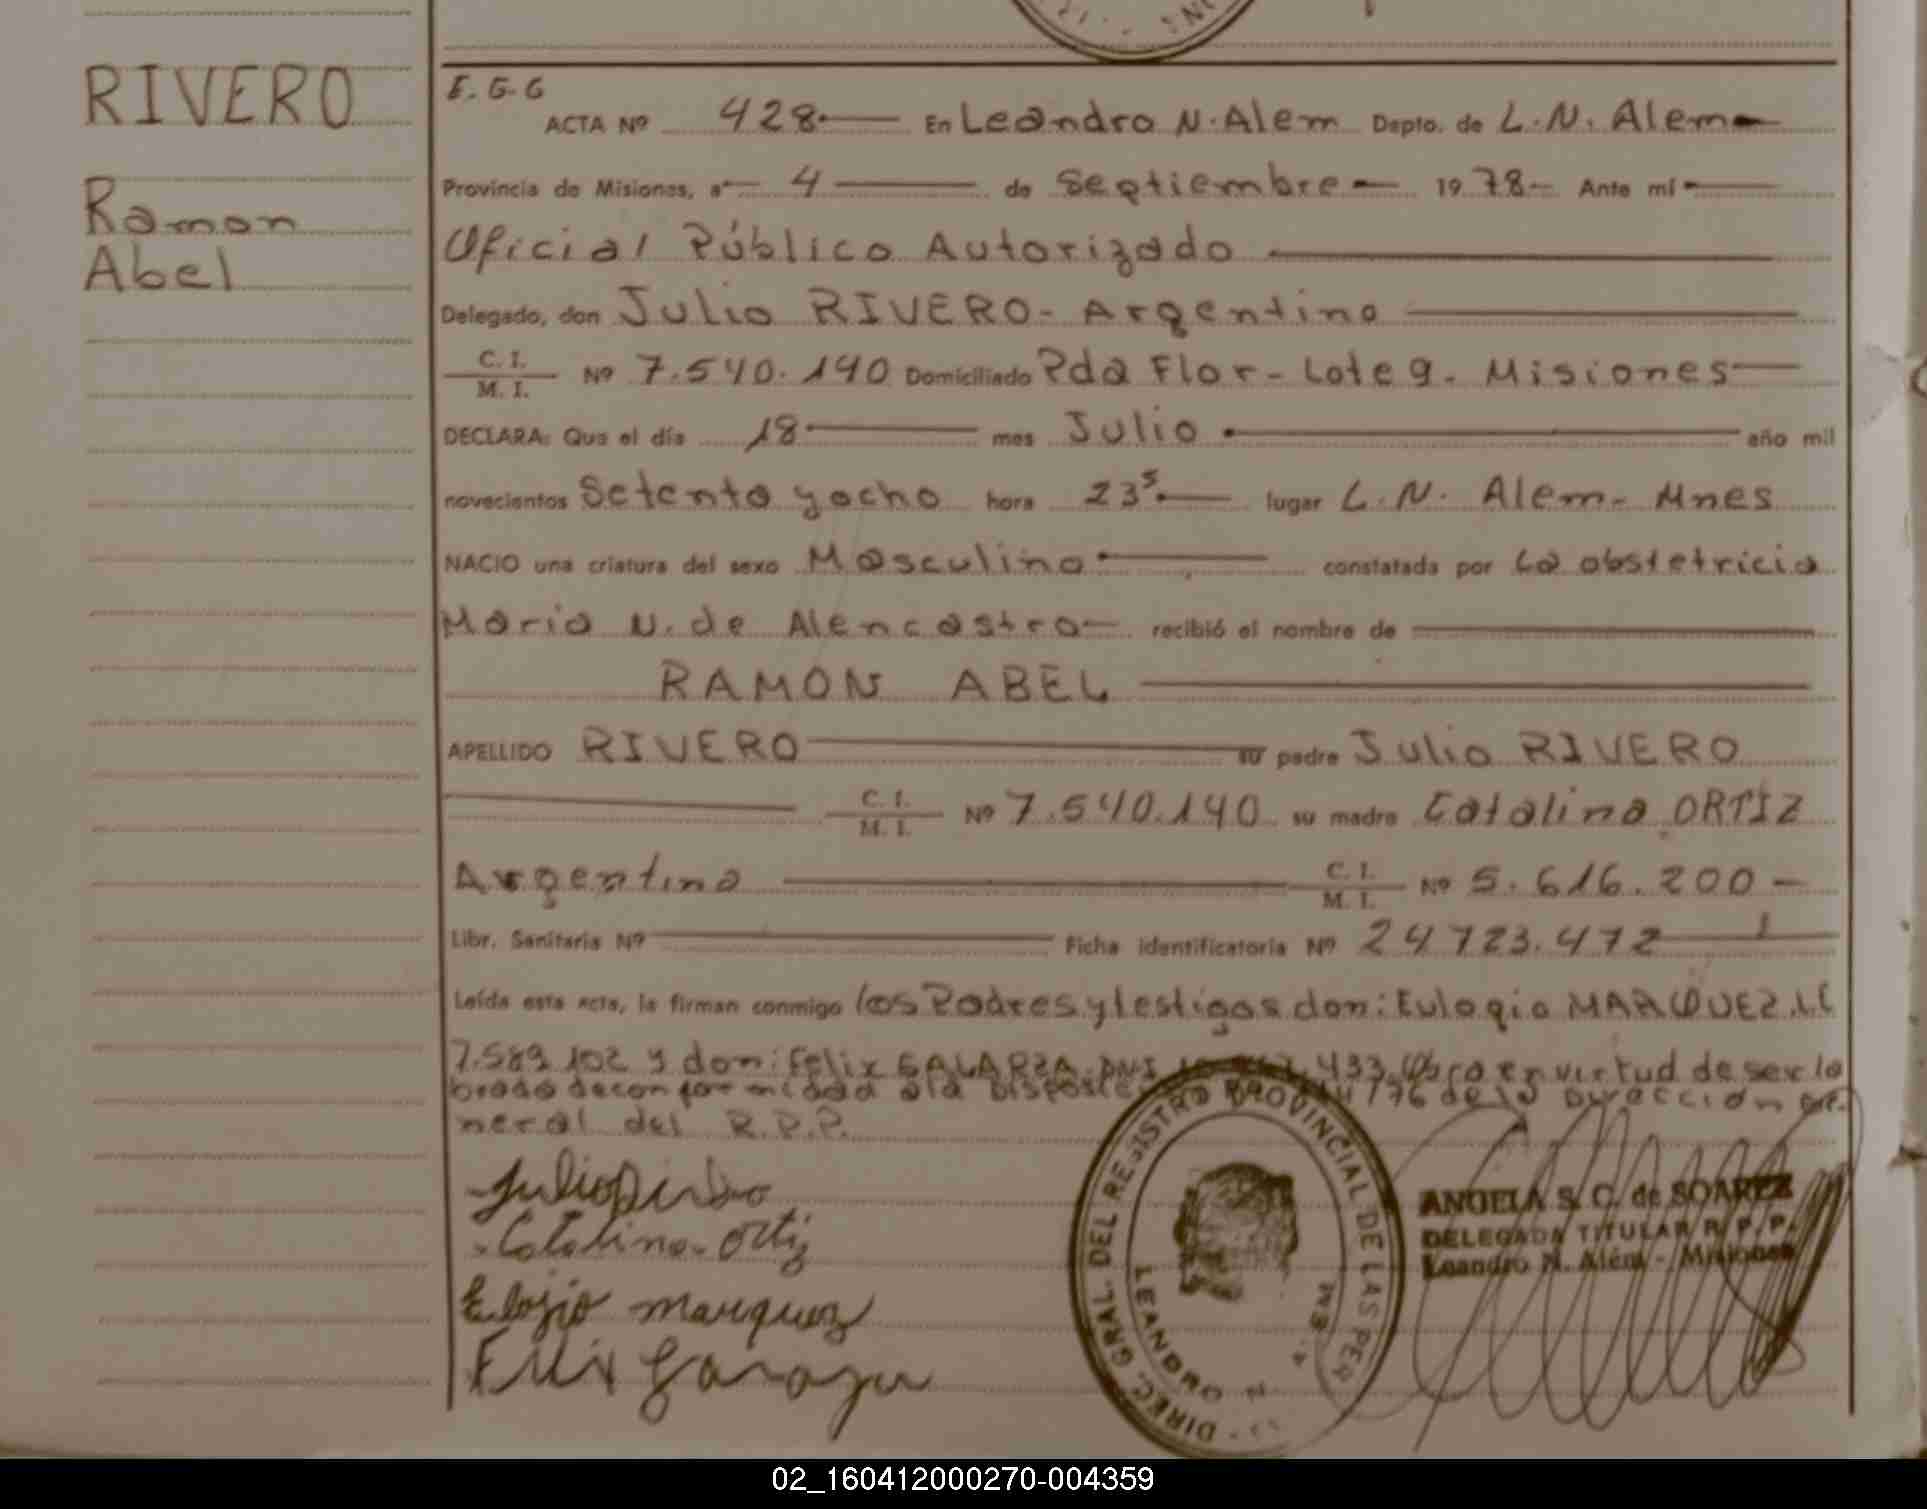 RIVERO
Ramon
Abel
E.G.G
ACTA Nº 428 En Leandro N. Alem Depto. de L.N. Alem
Provincia de Misiones, a 4 de Septiembre 1978 Ante mí
Oficial Público Autorizado
Delegado, don Julio RIVERO - Argentino
C. I.
M. I. Nº 7.540.140 Domiciliado Pda Flor - Lote 9. Misiones
DECLARA: Que el día 18 mes Julio año mil
novecientos Setenta y ocho hora 23⁵ lugar L.N. Alem - Mnes
NACIO una criatura del sexo Masculino constatada por La obstetricia
Maria N. de Alencastro recibió el nombre de
RAMON ABEL
APELLIDO RIVERO su padre Julio RIVERO
C. I.
M. I. Nº 7.540.140 su madre Catalina ORTIZ
Argentina C. I.
M. I. Nº 5.616.200
Libr. Sanitaria Nº Ficha identificatoria Nº 24723.472
Leída esta acta, la firman conmigo los Padres y testigos don: Eulogio MARQUEZ. L.E
7.589.102 y don: Felix GALARZA. DNI 433. en virtud de ser la
brada de conformidad a la 76 de la Dirección Ge.
neral del R.P.P.
Catalina Ortiz
Elogio marquez
DIREC. GRAL. DEL REGISTRO PROVINCIAL DE LAS PER
LEANDRO N.
ANGELA S. C. de SOAREZ
DELEGADA TITULAR R. P. P.
Leandro N. Alem - Misiones
02_160412000270-004359